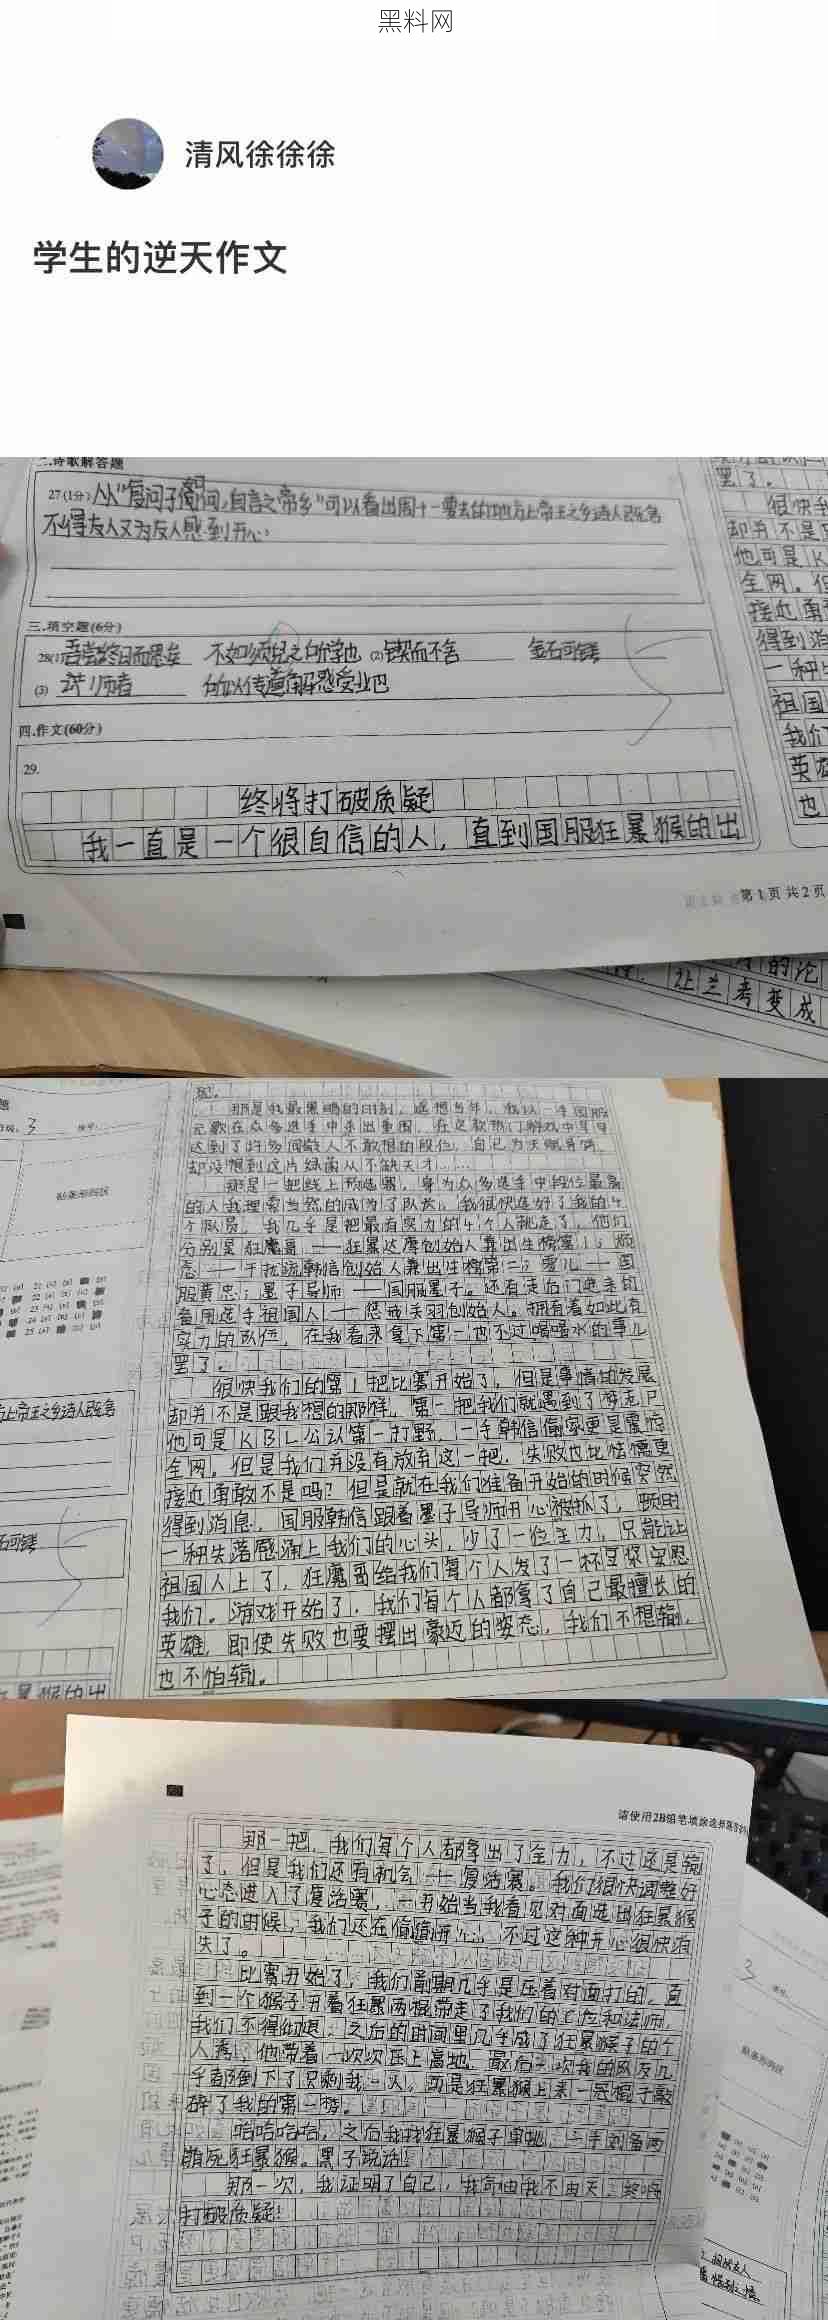 黑料网
清风徐徐徐
学生的逆天作文
二.诗歌解答题
不得友人又为友人感到开心。
三.填空题(6分)
28(1)吾尝终日而思矣 不如须臾之所学也 (2)锲而不舍 金石可镂
(3) 古之师者 所以传道解惑受业也
四.作文(60分)
29.
终将打破质疑
我一直是一个很自信的人，直到国服狂暴猴的出
第1页 共2页
现。
那是我最黑暗的时刻，遥想当年，我以一手国服
元歌在众多选手中杀出重围，在这款热门游戏中早早
达到了许多同龄人不敢想的段位，自己为天赋异禀，
却没想到这片绿茵从不缺天才……
那是一把线上预选赛，身为众多选手中段位最高
的人我理索当然的成为了队长，我很快选好了我的4
个队员，我几乎是把最有实力的4个人挑走了，他们
分别是狂魔哥——狂暴达摩创始人兼出生榜第1；
态——干扰流韩信创始人兼出生榜第二；雯儿——国
服黄忠；墨子导师——国服墨子。还有走后门进来的
备用选手祖国人——惩戒关羽创始人。拥有着如此有
实力的队伍，在我看来拿下第一也不过喝喝水的事儿
罢了。
很快我们的第1把比赛开始了，但是事情的发展
却并不是跟我想的那样，第一把我们就遇到了游走P
他可是KBL公认第一打野，一手韩信偷家更是震惊
全网。但是我们并没有放弃这一把，失败也比怯懦更
接近勇敢不是吗？但是就在我们准备开始的时候突然
得到消息，国服韩信跟着墨子导师开心被抓了，顿时
一种失落感涌上我们的心头，少了一位主力，只能让
祖国人上了，狂魔哥给我们每个人发了一杯豆浆安慰
我们。游戏开始了，我们每个人都拿了自己最擅长的
英雄，即使失败也要摆出豪迈的姿态，我们不想输，
也不怕输。
请使用2B铅笔填涂选择题答
那一把，我们每个人都拿出了全力，不过还是输
了，但是我们还有机会——复活赛。我们很快调整好
心态进入了复活赛，一开始当我看见对面选出狂暴猴
子的时候，我们还在偷偷开心，不过这种开心很快消
失了。
比赛开始了，我们前期几乎是压着对面打的，直
到一个猴子开着狂暴两棍带走了我们的C位和法师，
我们不得彻退，之后的时间里几乎成了狂暴猴子的个
人秀，他带着一次次压上高地，最后一次我的队友几
乎都倒下了只剩我一人，而是狂暴猴上来一棍棍子敲
碎了我的第一梦。
哈哈哈哈，之后我找狂暴猴子单挑，一手刘备两
萌死狂暴猴。黑子说话
那一次，我证明了自己，我命由我不由天，终将
打破质疑！